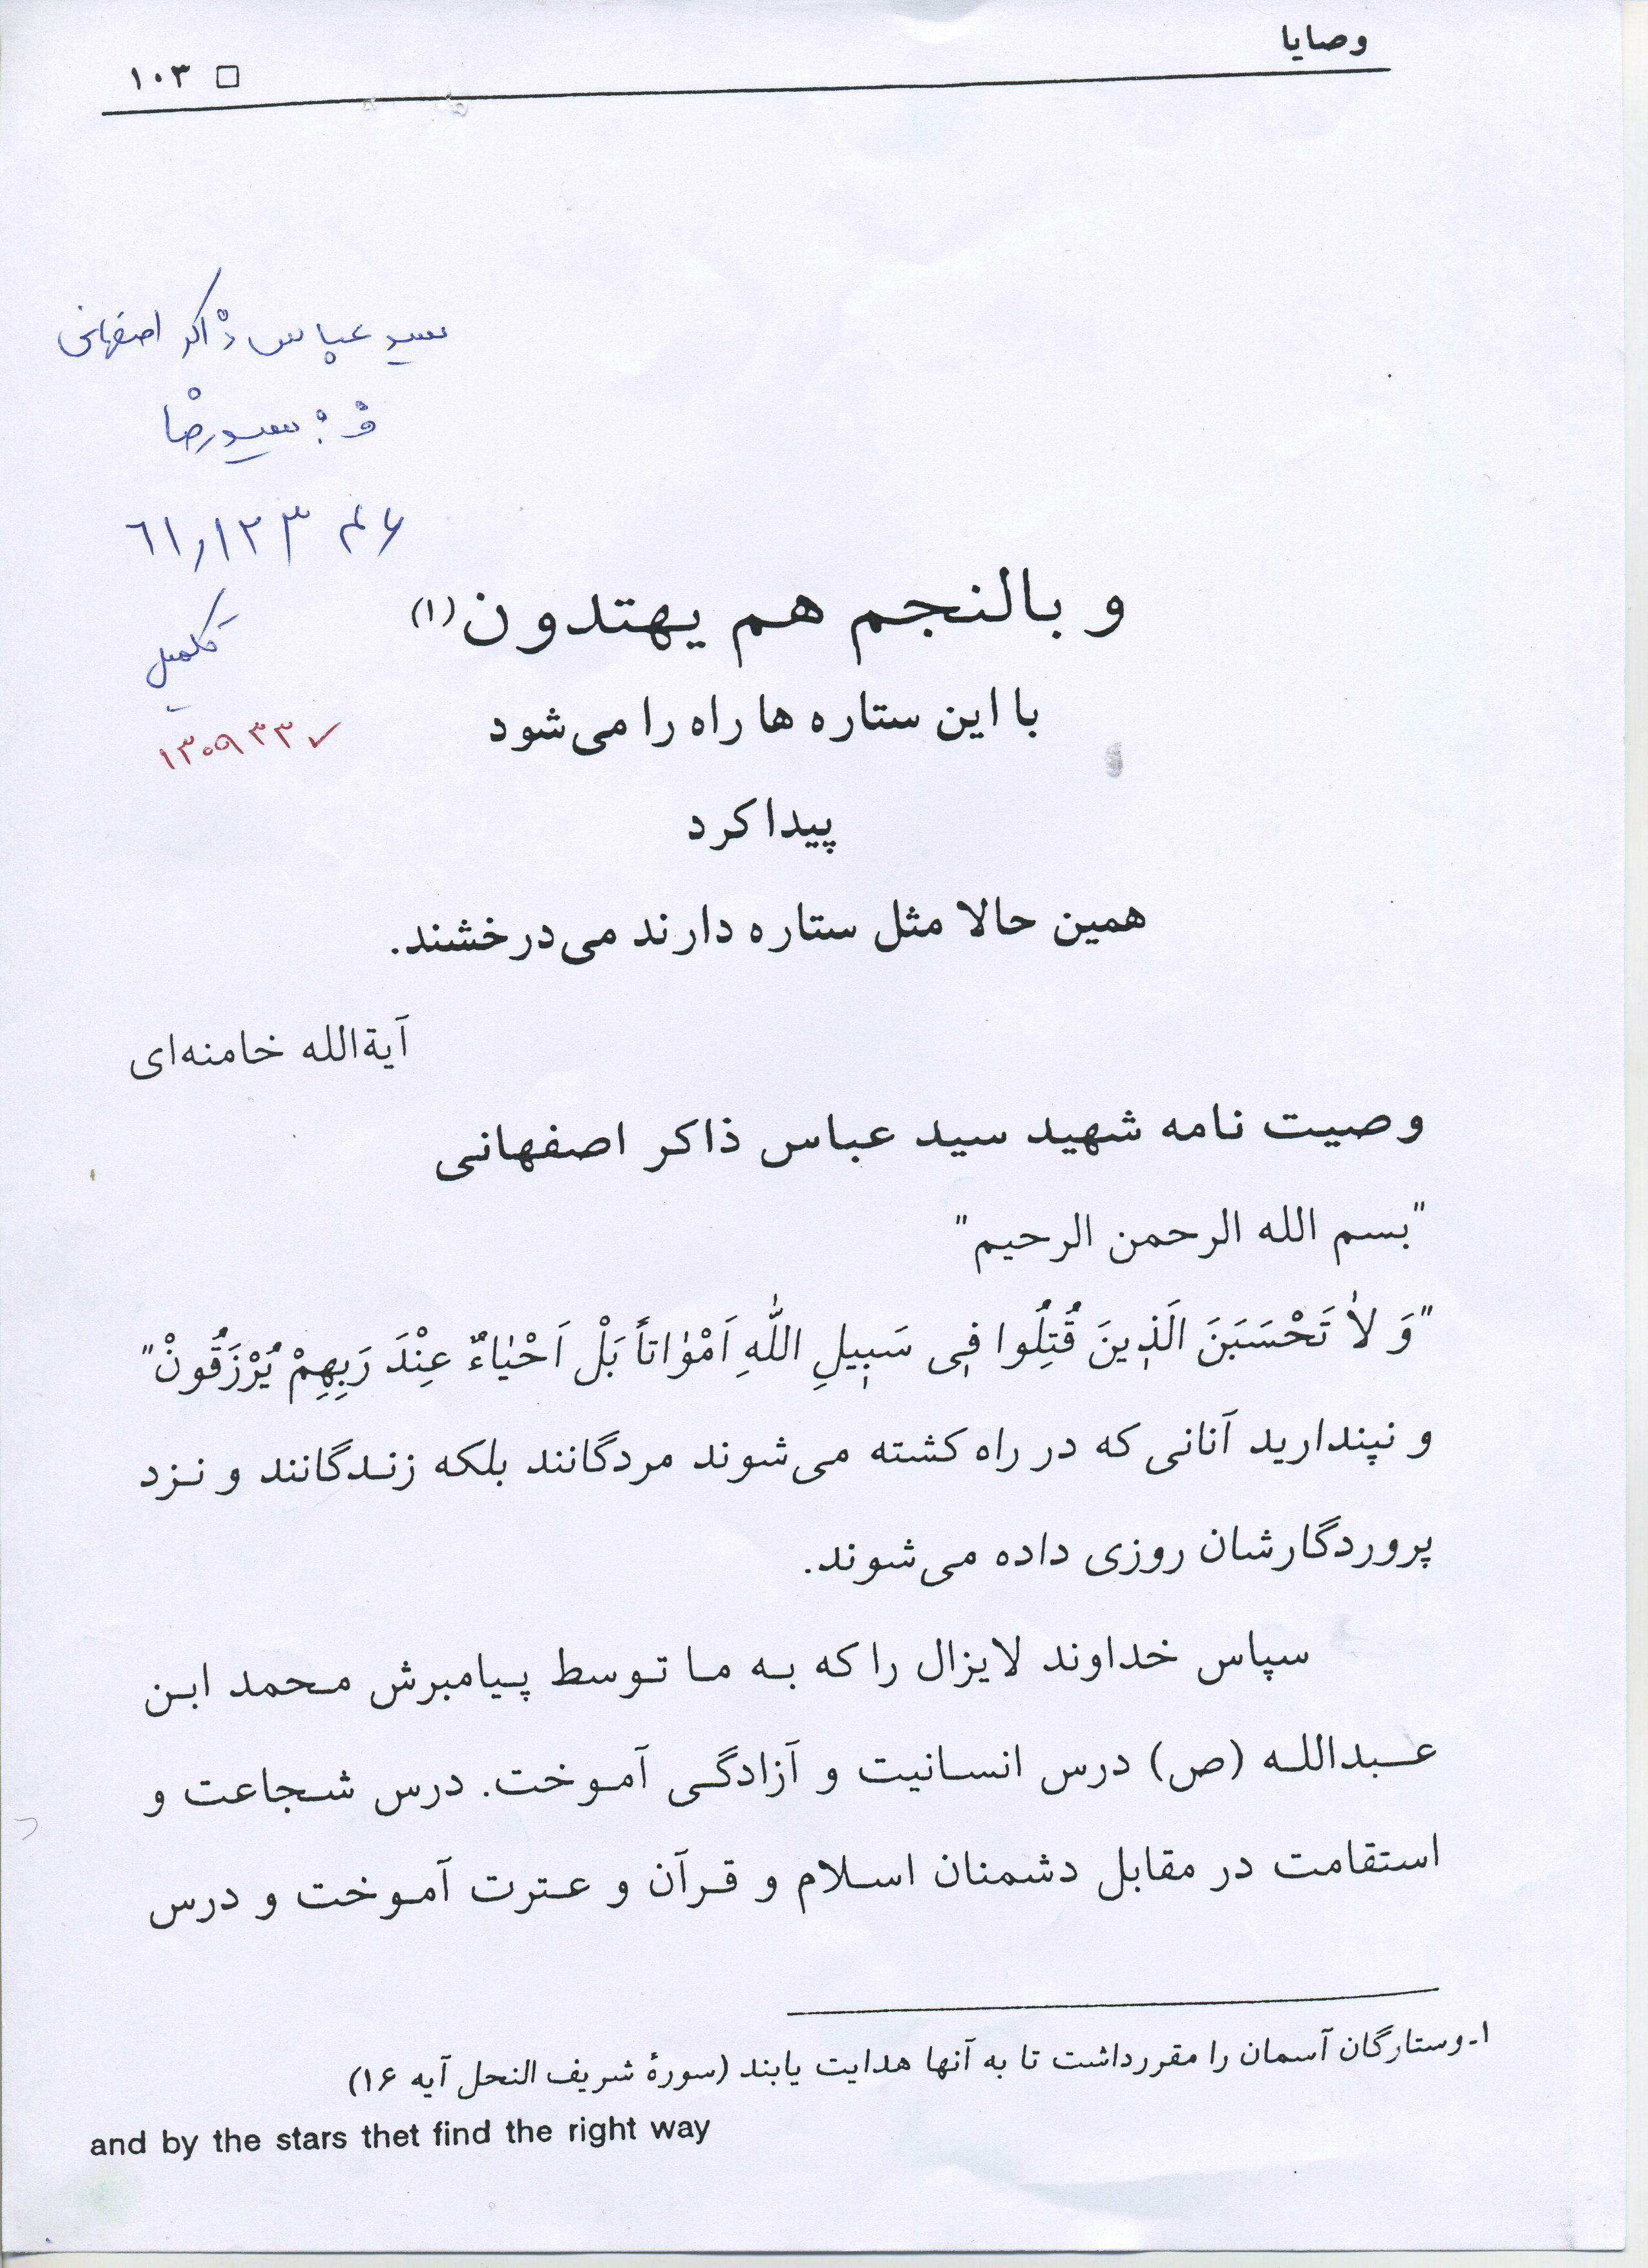 وصایا
۱۰۳ □
سید عباس ذاکر اصفهانی
ف: سیدرضا
۶۱/۱۲۳
تکمیل
۱۳۰۵۹۳۳ ✓
و بالنجم هم یهتدون(۱)
با این ستاره ها راه را می‌شود
پیدا کرد
همین حالا مثل ستاره دارند می‌درخشند.
آیةالله خامنه‌ای
وصیت نامه شهید سید عباس ذاکر اصفهانی
"بسم الله الرحمن الرحیم"
"وَ لاٰ تَحْسَبَنَ الَذِینَ قُتِلُوا فِی سَبِیلِ اللّٰهِ اَمْوٰاتاً بَلْ اَحْیٰاءٌ عِنْدَ رَبِهِمْ یُرْزَقُونْ"
و نپندارید آنانی که در راه کشته می‌شوند مردگانند بلکه زندگانند و نزد
پروردگارشان روزی داده می‌شوند.
سپاس خداوند لایزال را که به ما توسط پیامبرش محمد ابن
عبدالله (ص) درس انسانیت و آزادگی آموخت. درس شجاعت و
استقامت در مقابل دشمنان اسلام و قرآن و عترت آموخت و درس
۱-وستارگان آسمان را مقررداشت تا به آنها هدایت یابند (سورهٔ شریف النحل آیه ۱۶)
and by the stars thet find the right way